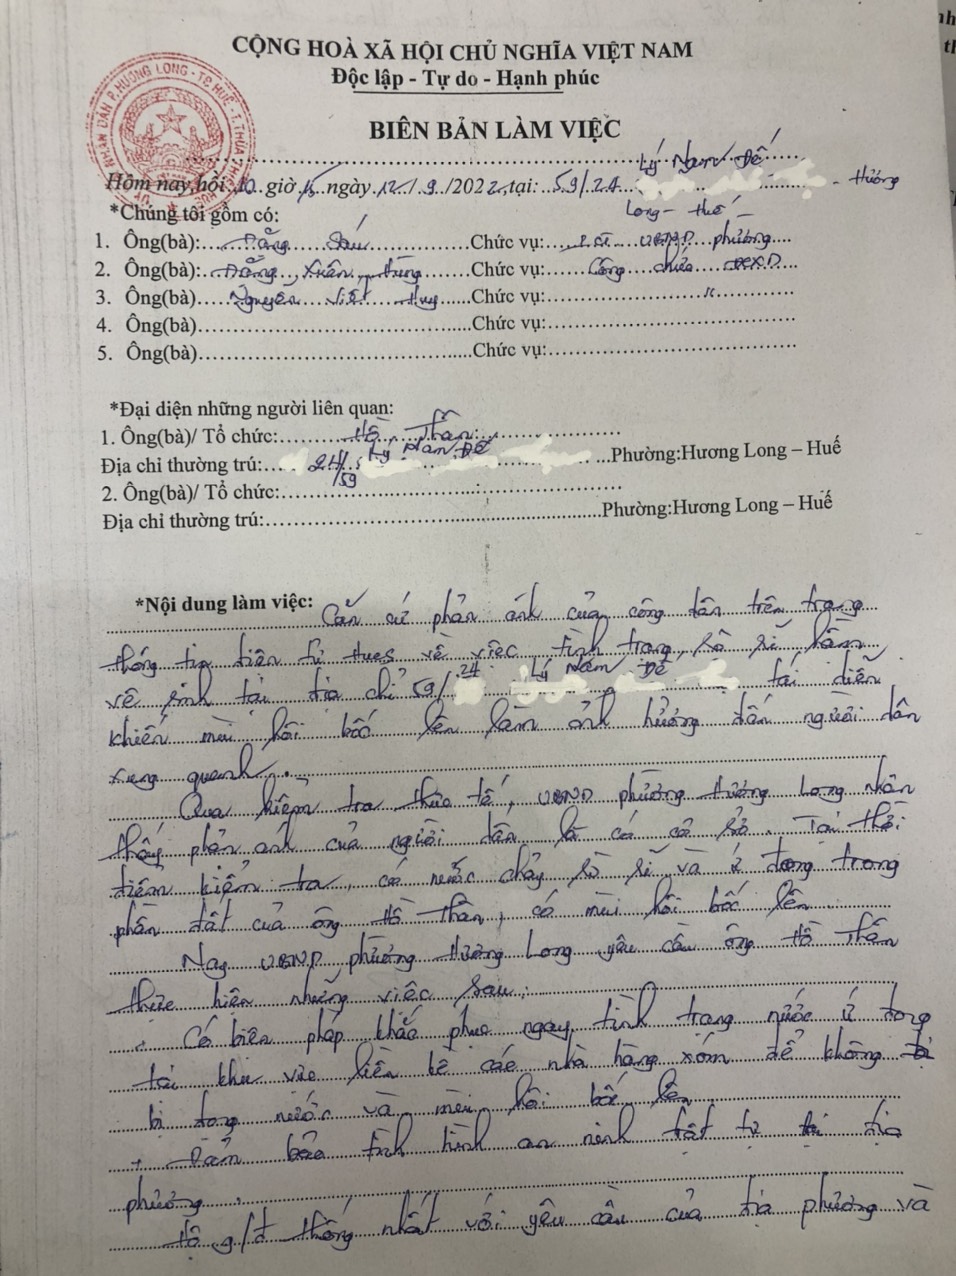 CỘNG HOÀ XÃ HỘI CHỦ NGHĨA VIỆT NAM
Độc lập - Tự do - Hạnh phúc
BIÊN BẢN LÀM VIỆC
NHÂN DÂN P.HƯƠNG LONG - TP.HUẾ - T.THỪA THIÊN HUẾ
Lý Nam Đế
Hôm nay, hồi 10 giờ 15 ngày 12/9/2022 tại: 59/24 Hương
Long - Huế
*Chúng tôi gồm có:
1. Ông(bà): Đặng Sáu Chức vụ: UBND phường
2. Ông(bà): Đặng Xuân Hùng Chức vụ: Công chức ĐCXD
3. Ông(bà) Nguyễn Viết Huy Chức vụ: "
4. Ông(bà) Chức vụ:
5. Ông(bà) Chức vụ:
*Đại diện những người liên quan:
1. Ông(bà)/ Tổ chức: Hồ Thần
Địa chỉ thường trú: 24/59 Lý Nam Đế Phường:Hương Long – Huế
2. Ông(bà)/ Tổ chức:
Địa chỉ thường trú: Phường:Hương Long – Huế
*Nội dung làm việc: Căn cứ phản ánh của công dân trên trang
thông tin điện tử HueS về việc tình trạng rò rỉ hầm
vệ sinh tại địa chỉ 59/24 Lý Nam Đế tái diễn
khiến mùi hôi bốc lên làm ảnh hưởng đến người dân
xung quanh.
Qua kiểm tra thực tế, UBND phường Hương Long nhận
thấy phản ánh của người dân là có cơ sở. Tại thời
điểm kiểm tra, có nước chảy rò rỉ và ứ đọng trong
phần đất của ông Hồ Thần, có mùi hôi bốc lên.
Nay UBND phường Hương Long yêu cầu ông Hồ Thần
thực hiện những việc sau:
- Có biện pháp khắc phục ngay tình trạng nước ứ đọng
tại khu vực liền kề các nhà hàng xóm để không
bị đọng nước và mùi hôi bốc lên.
- Đảm bảo tình hình an ninh trật tự tại địa
phương.
Hộ g/đ thống nhất với yêu cầu của địa phương và